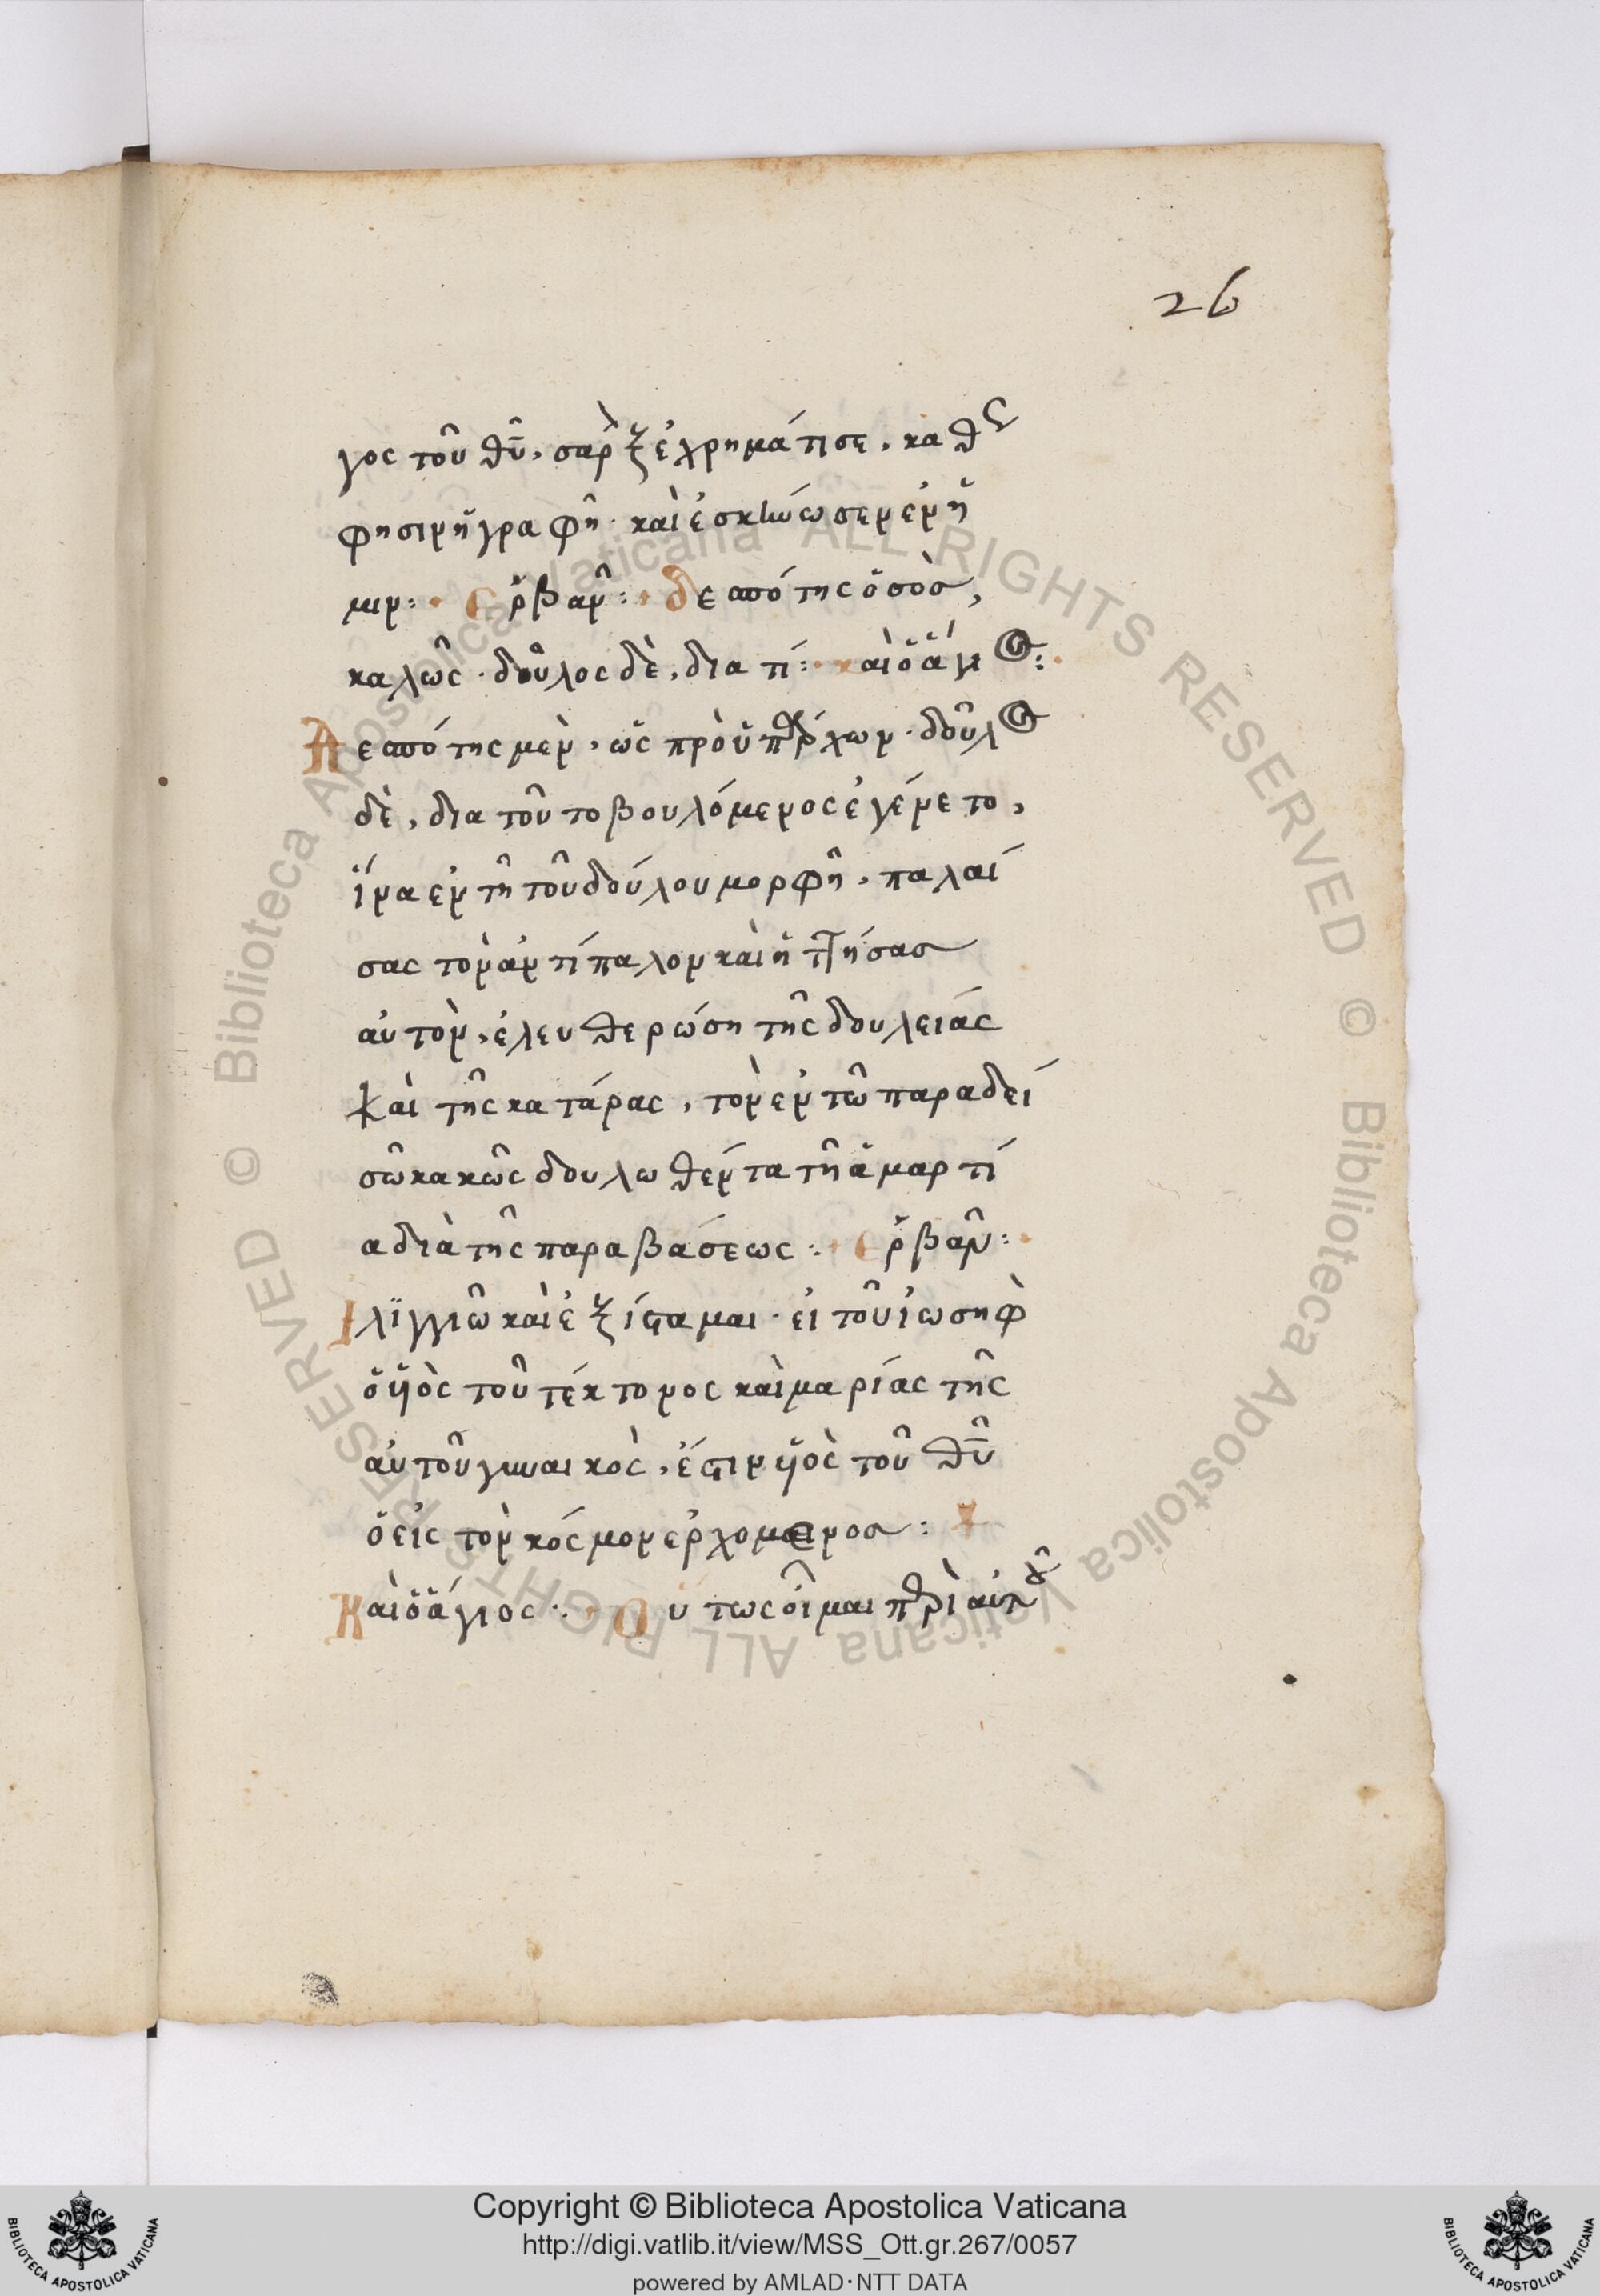 26
γος τοῦ θῦ, σαρξ ἐχρημάτισε, καθς
φησιν ἡ γραφῆ· καὶ ἐσκήνωσεν ἐν ἡ
μιν: Ερβαν: δεσπότης ὁ σὸσ,
καλῶς· δοῦλος δὲ, δια τί: καὶ ὁ ἅγιος:
Δεσπότης μεν, ὡς πρὸ ὑπάρχων· δοῦλος
δὲ, δια τοῦτο βουλόμενος ἐγένετο,
ἵνα εν τῆ τοῦ δούλου μορφῆ, παλαί
σας τον αντίπαλον καὶ ἡττήσασ
αὐτον, ἐλευθερώση τῆς δουλειάς
καὶ τῆς κατάρας, τον εν τῶ παραδεί
σω κακῶς δουλωθέντα τῆ ἁμαρτί
α διὰ τῆς παραβάσεως: Ερβαν:
Ιλϊγγιῶ καὶ ἐξίσταμαι· εἰ τοῦ ἰωσηφ
ὁ ϋἱὸς τοῦ τέκτονος καὶ μαρίας τῆς
αὐτοῦ γυναικὸς, ἐστιν ϋἱὸς τοῦ θῦ
ὁ εἰς τον κόσμον ερχομενοσ:
Καὶ ὁ ἅγιος: Ουτως οἶμαι περὶ αὐτοῦ
Copyright © Biblioteca Apostolica Vaticana
http://digi.vatlib.it/view/MSS_Ott.gr.267/0057
powered by AMLAD·NTT DATA
© Biblioteca Apostolica Vaticana ALL RIGHTS RESERVED
© Biblioteca Apostolica Vaticana ALL RIGHTS RESERVED
BIBLIOTECA APOSTOLICA VATICANA
BIBLIOTECA APOSTOLICA VATICANA